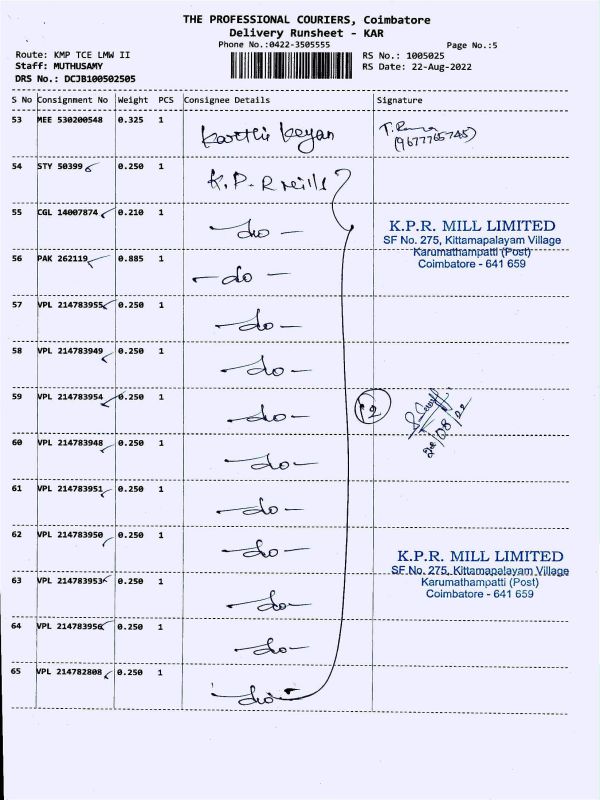 THE PROFESSIONAL COURIERS, Coimbatore
Delivery Runsheet - KAR
Phone No.:0422-3505555
Page No.:5
Route: KMP TCE LMW II
RS No.: 1005025
Staff: MUTHUSAMY
RS Date: 22-Aug-2022
DRS No.: DCJB100502505
S No Consignment No Weight PCS Consignee Details Signature
53 MEE 530200548 0.325 1 Karthi Keyan
(9677765745)
54 STY 50399 0.250 1 K.P.R mills
55 CGL 14007874 0.210 1 -do-
K.P.R. MILL LIMITED
SF No. 275, Kittamapalayam Village
Karumathampatti (Post)
Coimbatore - 641 659
56 PAK 262119 0.885 1 -do-
57 VPL 214783955 0.250 1 -do-
58 VPL 214783949 0.250 1 -do-
59 VPL 214783954 0.250 1 -do-
12
60 VPL 214783948 0.250 1 -do-
61 VPL 214783951 0.250 1 -do-
62 VPL 214783950 0.250 1 -do-
K.P.R. MILL LIMITED
SF No. 275, Kittamapalayam Village
Karumathampatti (Post)
Coimbatore - 641 659
63 VPL 214783953 0.250 1 -do-
64 VPL 214783956 0.250 1 -do-
65 VPL 214782808 0.250 1 -do-